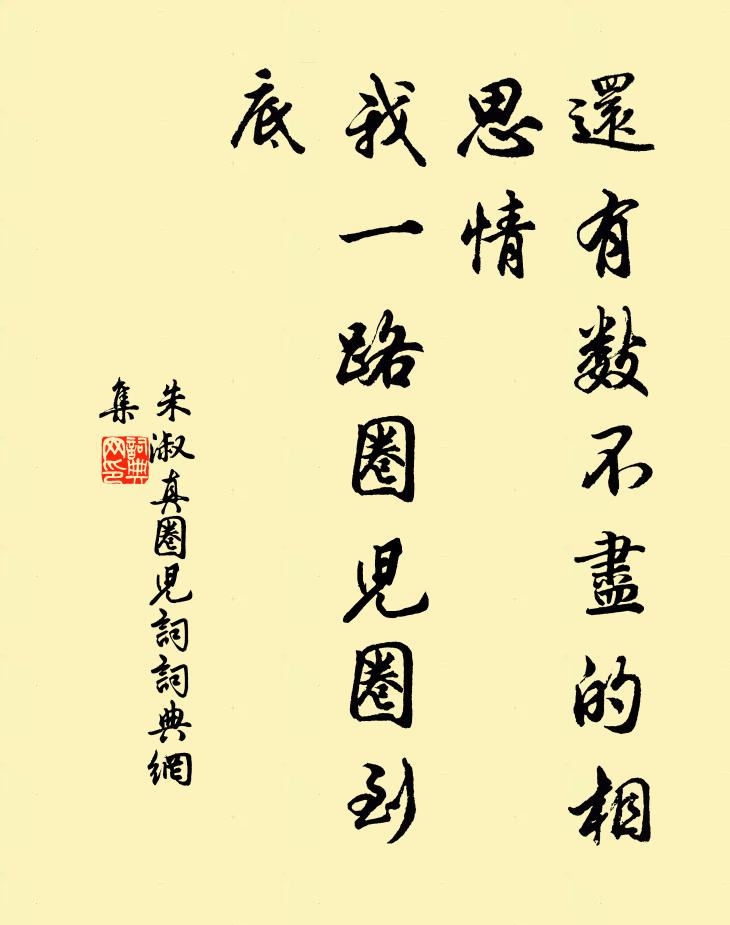 還有数不盡的相
思情
我一路圈児圈到
底
朱淑真圈児詞詞典網
集
詞典
网印